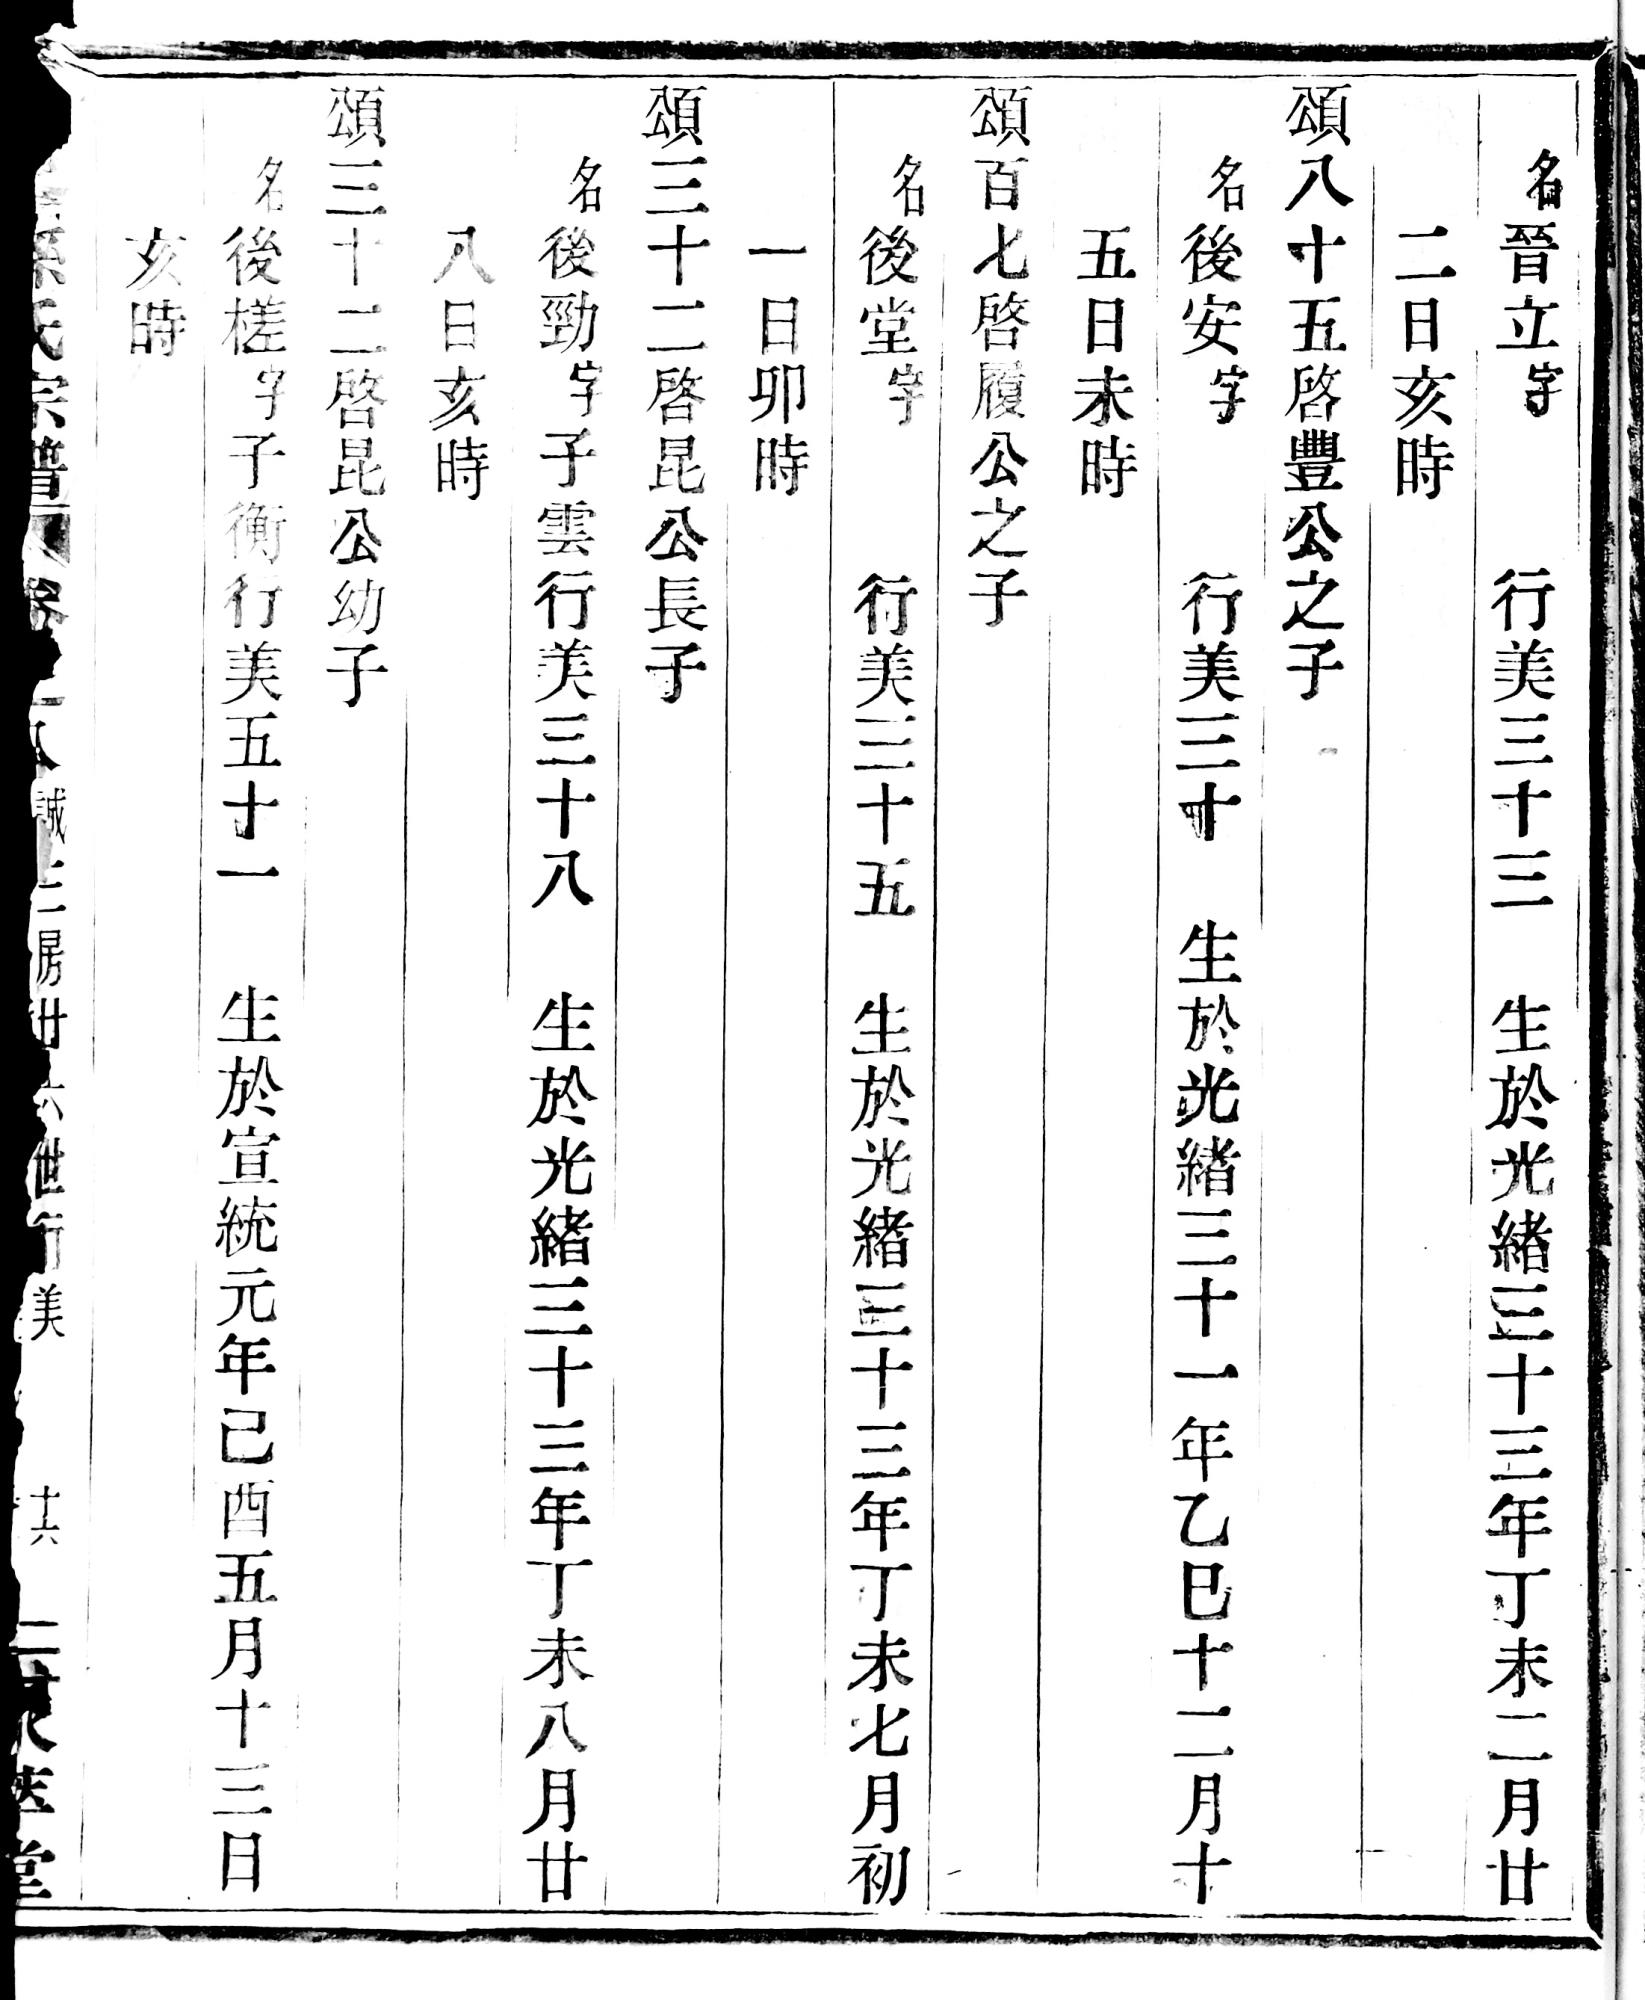 名晉立字 行美三十三 生於光緒三十三年丁未二月廿
二日亥時
頌八十五啓豐公之子
名後安字 行美三十 生於光緒三十一年乙巳十二月十
五日未時
頌百七啓履公之子
名後堂字 行美三十五 生於光緒三十三年丁未七月初
一日卯時
頌三十二啓昆公長子
名後勁字子雲行美三十八 生於光緒三十三年丁未八月廿
八日亥時
頌三十二啓昆公幼子
名後槎字子衡行美五十一 生於宣統元年己酉五月十三日
亥時
氏宗譜 卷 八 誠 房卅六世行美 十六 堂